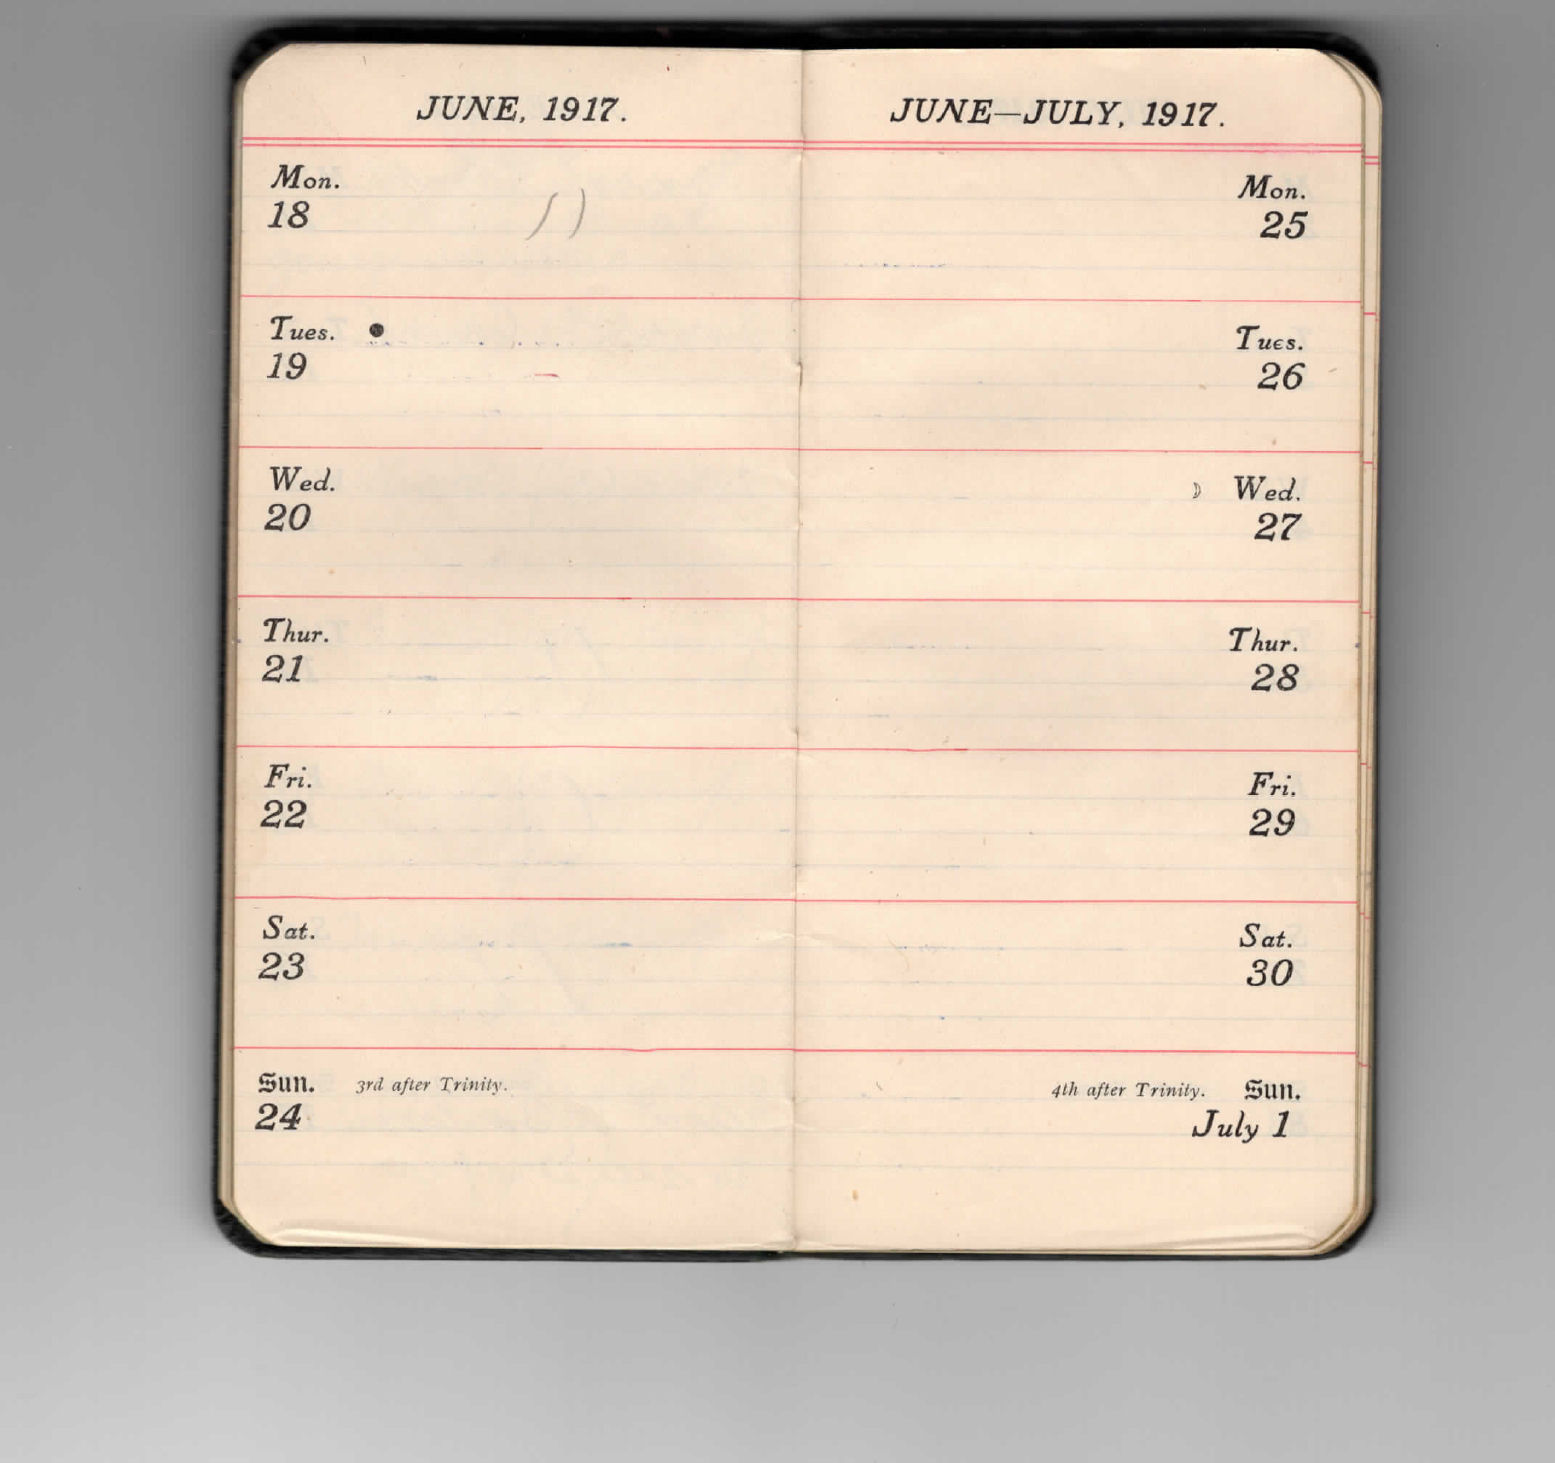 JUNE, 1917.
Mon.
18
Tues. ●
19
Wed.
20
Thur.
21
Fri.
22
Sat.
23
Sun. 3rd after Trinity.
24
JUNE—JULY, 1917.
Mon.
25
Tues.
26
☽ Wed.
27
Thur.
28
Fri.
29
Sat.
30
4th after Trinity. Sun.
July 1